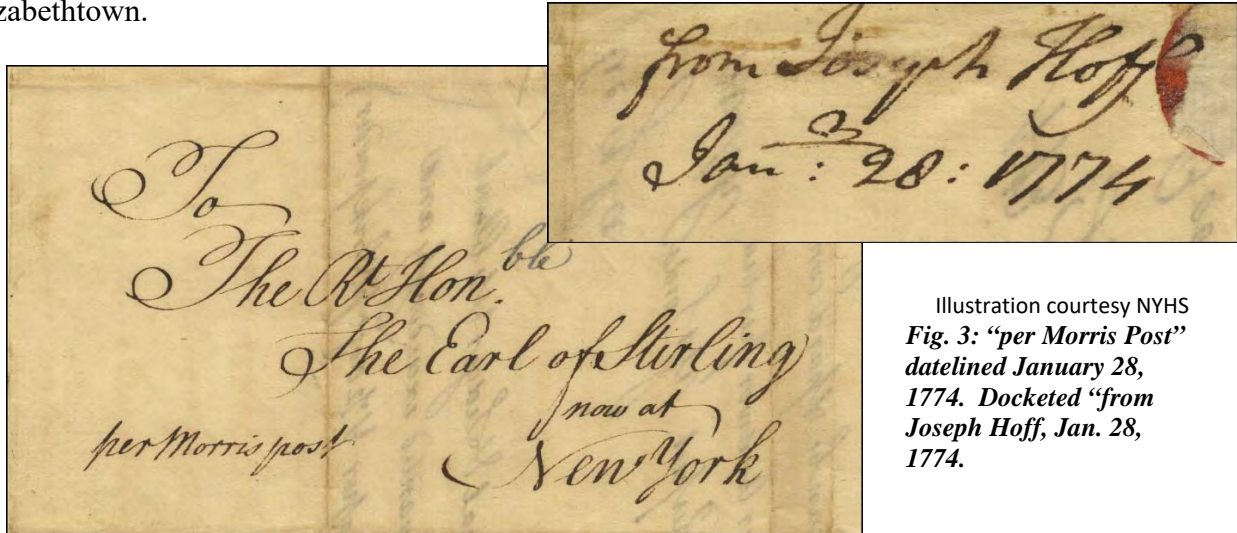 zabethtown.
from Joseph Hoff
Jan: 28: 1774
To
The Rt. Hon.ble
The Earl of Stirling
now at
New York
per Morris post
Illustration courtesy NYHS
Fig. 3: “per Morris Post”
datelined January 28,
1774. Docketed “from
Joseph Hoff, Jan. 28,
1774.